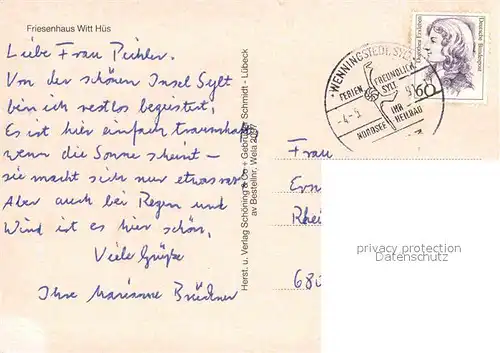 Friesenhaus Witt Hüs
Liebe Frau Pichler.
Von der schönen Insel Sylt
bin ich restlos begeistert.
Es ist hier einfach traumhaft
wenn die Sonne scheint –
sie macht sich nur etwas rar
Aber auch bei Regen und
Wind ist es hier schön.
Viele Grüße
Ihre Marianne Brückner
Herst. u. Verlag Schöning & Co + Gebrüder Schmidt - Lübeck
av Bestellnr. Wela
WENNINGSTEDT, SYLT
FERIEN
FREUNDLICH
SYLT
IHR
HEILBAD
NORDSEE
Deutsche Bundespost
Dorothea Erxleben
60
Frau
Ern
Rhei
680
privacy protection
Datenschutz